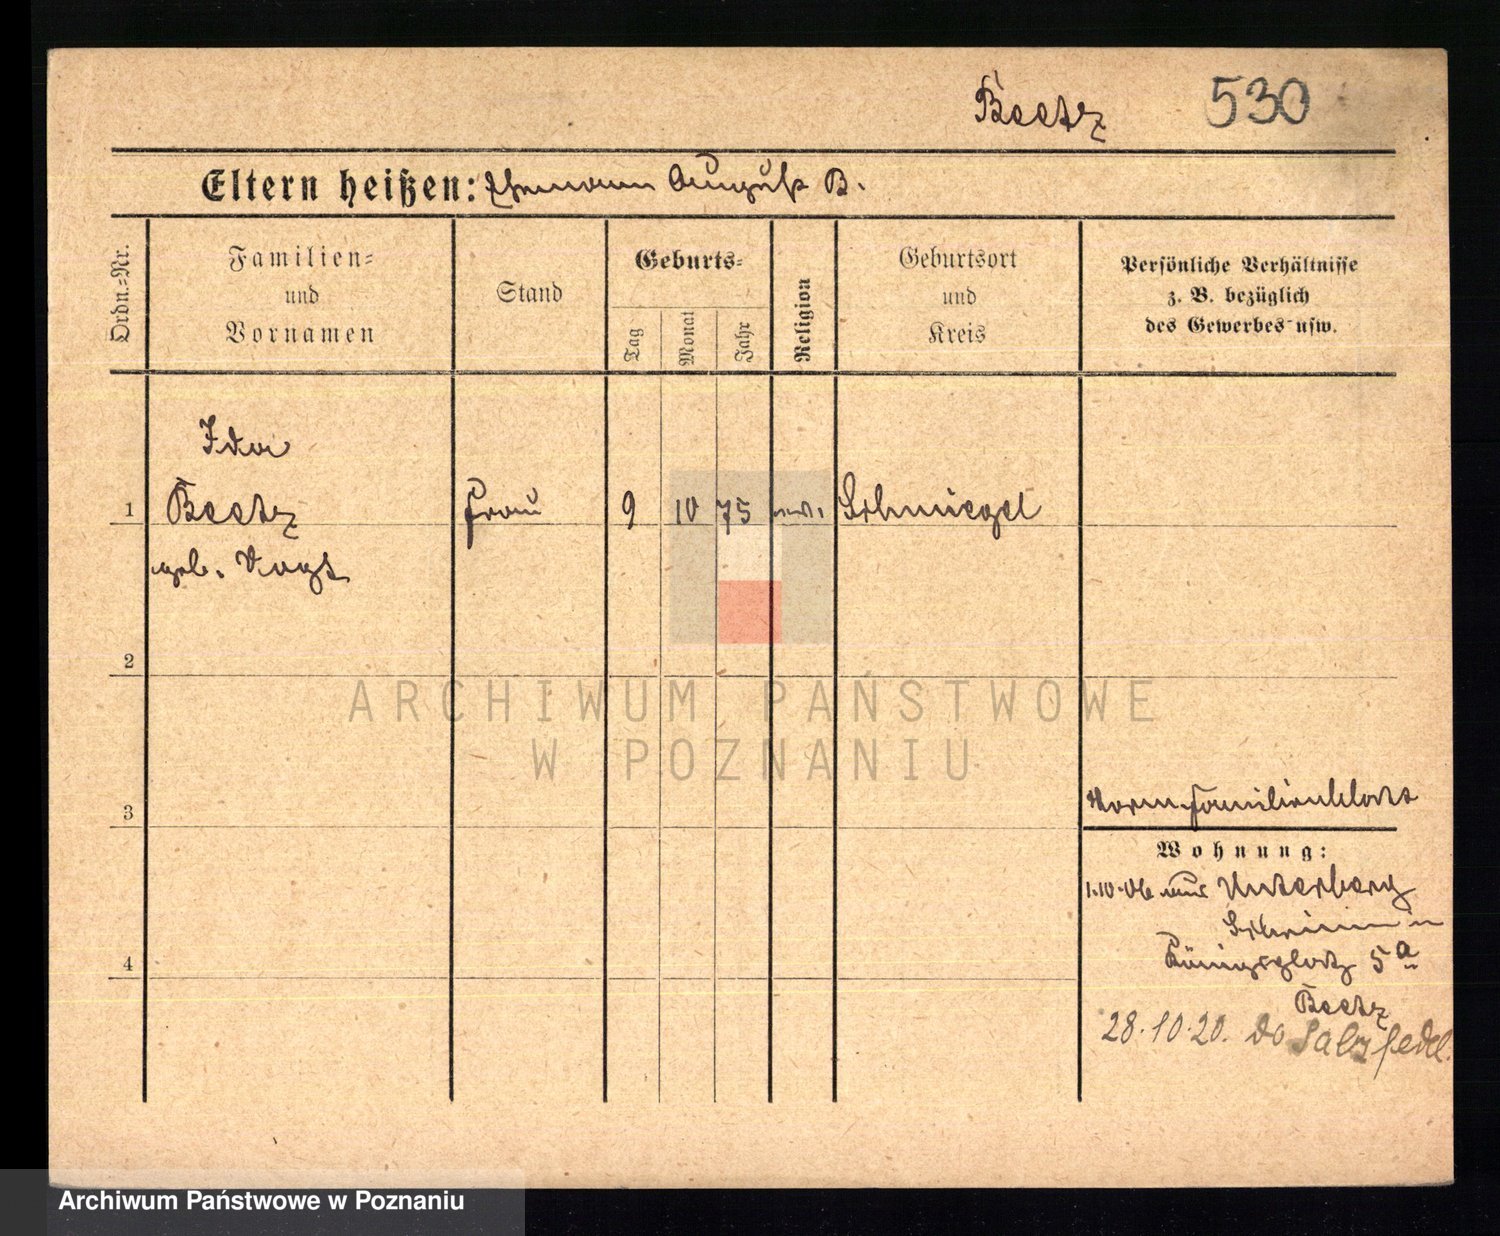 Beetz 530
Eltern heißen: Ehemann August B.
Ordn.-Nr.
Familien-
und
Vornamen
Stand
Geburts-
Tag
Monat
Jahr
Religion
Geburtsort
und
Kreis
Persönliche Verhältnisse
z. B. bezüglich
des Gewerbes usw.
Ida
1 Beetz Frau 9 10 75 ev. Schmiegel
geb. Vogt
2
ARCHIWUM PAŃSTWOWE
W POZNANIU
3
Norm. Familienblatt
Wohnung:
1.10.06 aus Unterberg
Schrimm
Königsplatz 5a
4
Beetz
28.10.20. do Salzfedel.
Archiwum Państwowe w Poznaniu